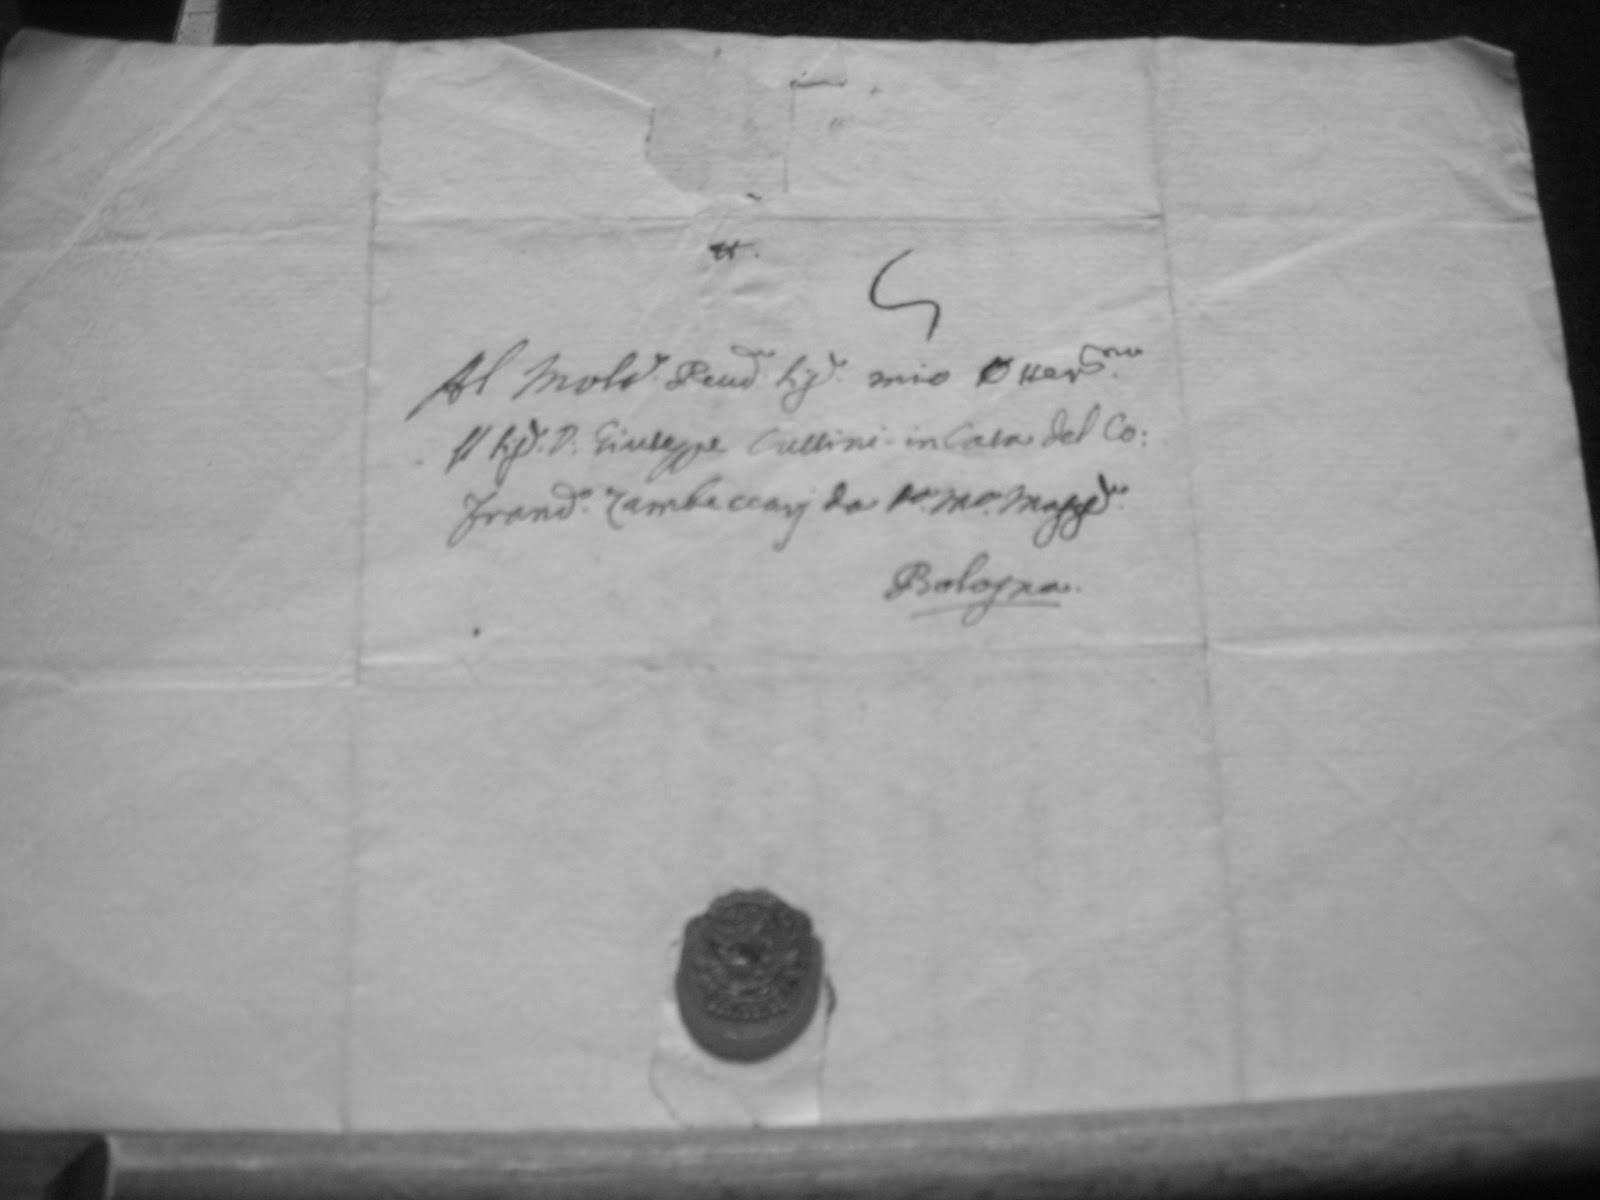 Al Molto Revd. Sigr. mio Osserv.mo
Il Sigr. D. Giuseppe Cullini in Casa del Co:
Frand. Zambeccarj da Sa. Ma. Maggre.
Bologna.